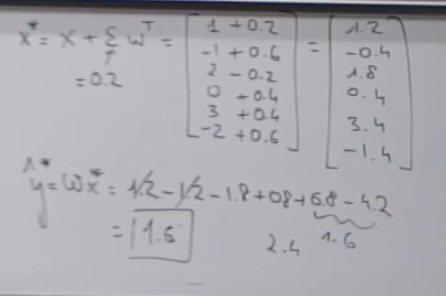 x* = x + Σ wᵀ = [1 + 0.2; -1 + 0.6; 2 - 0.2; 0 + 0.4; 3 + 0.4; -2 + 0.6] = [1.2; -0.4; 1.8; 0.4; 3.4; -1.4]
↑
= 0.2
ŷ* = wx* = 1/2 - 1/2 - 1.8 + 08 + 6.8 - 4.2
= 1.6
2.4 1.6